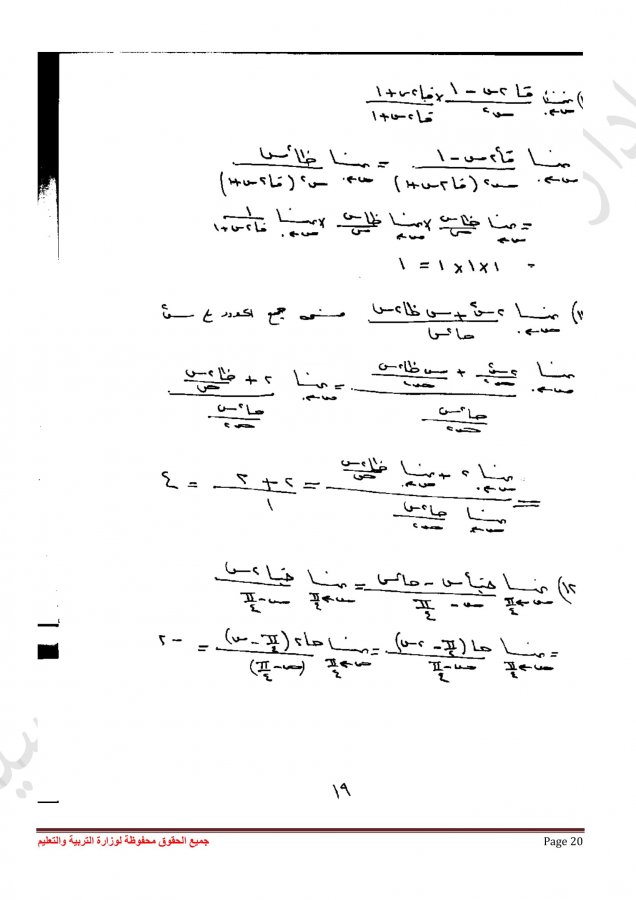 ١) نهــا س←٠ (قا٢س − ١)/س٢ × (قا٢س + ١)/(قا٢س + ١)
نهــا س←٠ (قا٢٢س − ١)/(س٢(قا٢س + ١)) = نهــا س←٠ ظا٢س/(س٢(قا٢س + ١))
= نهــا س←٠ ظاس/س × نهــا س←٠ ظاس/س × نهــا س←٠ ١/(قا٢س + ١)
= ١ × ١ × ١ = ١
١) نهــا س←٠ (٢س٢ + س ظا٢س)/حا٢س جمع الحدود ع س٢
نهــا س←٠ (٢س٢/س٢ + س ظا٢س/س٢)/(حا٢س/س٢) = نهــا س←٠ (٢ + ظا٢س/س)/(حا٢س/س٢)
= (نهــا س←٠ ٢ + نهــا س←٠ ظا٢س/س)/(نهــا س←٠ حا٢س/س٢) = (٢ + ٢)/١ = ٤
١٢) نهــا س←π/٤ (حتا٢س − حا٢س)/(س − π/٤) = نهــا س←π/٤ حتا٢س/(س − π/٤)
= نهــا س←π/٤ حا(π/٢ − ٢س)/(س − π/٤) = نهــا س←π/٤ حا٢(π/٤ − س)/(س − π/٤) = −٢
١٩
جميع الحقوق محفوظة لوزارة التربية والتعليم Page 20